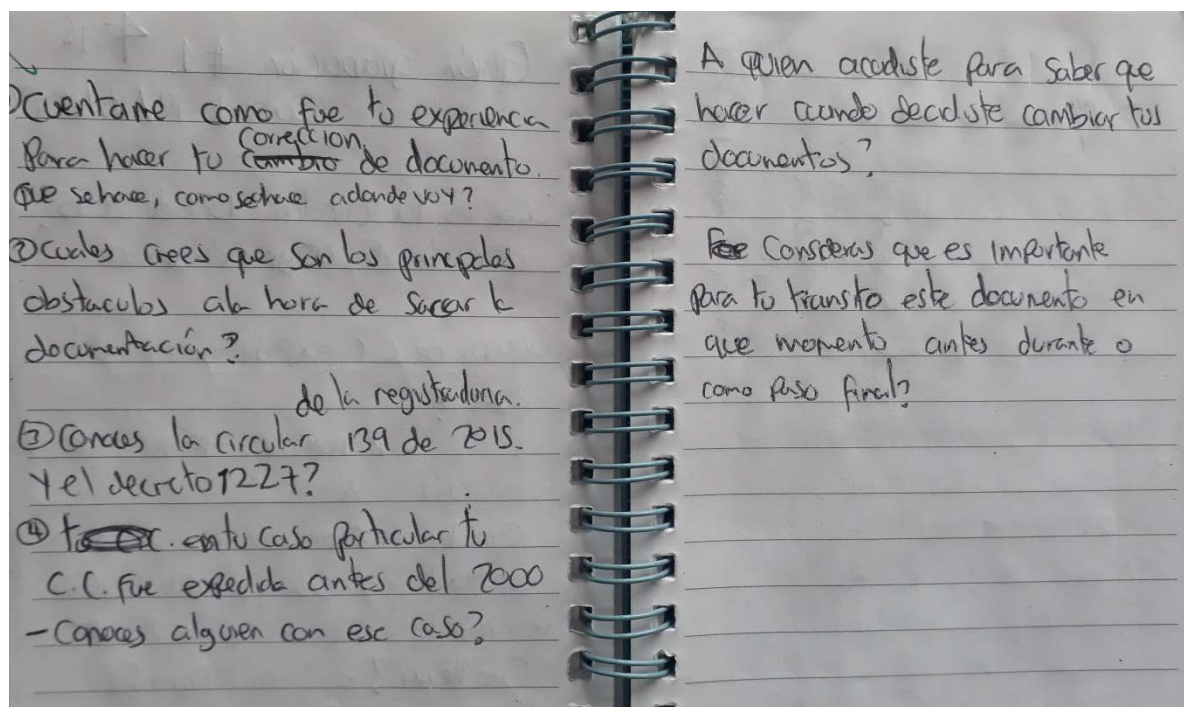 1) Cuentame como fue tu experiencia
Para hacer tu cambio correccion de documento.
Que se hace, como se hace adonde voy?
② Cuales crees que son los principales
obstaculos ala hora de sacar la
documentación?
de la registraduria.
③ Conoces la circular 139 de 2015.
Y el decreto 1227?
④ en tu caso particular tu
C.C. fue expedida antes del 2000
- Conoces alguien con ese caso?
A quien acudiste para saber que
hacer cuando decidiste cambiar tus
documentos?
Consideras que es importante
para tu transito este documento en
que momento antes durante o
como paso final?